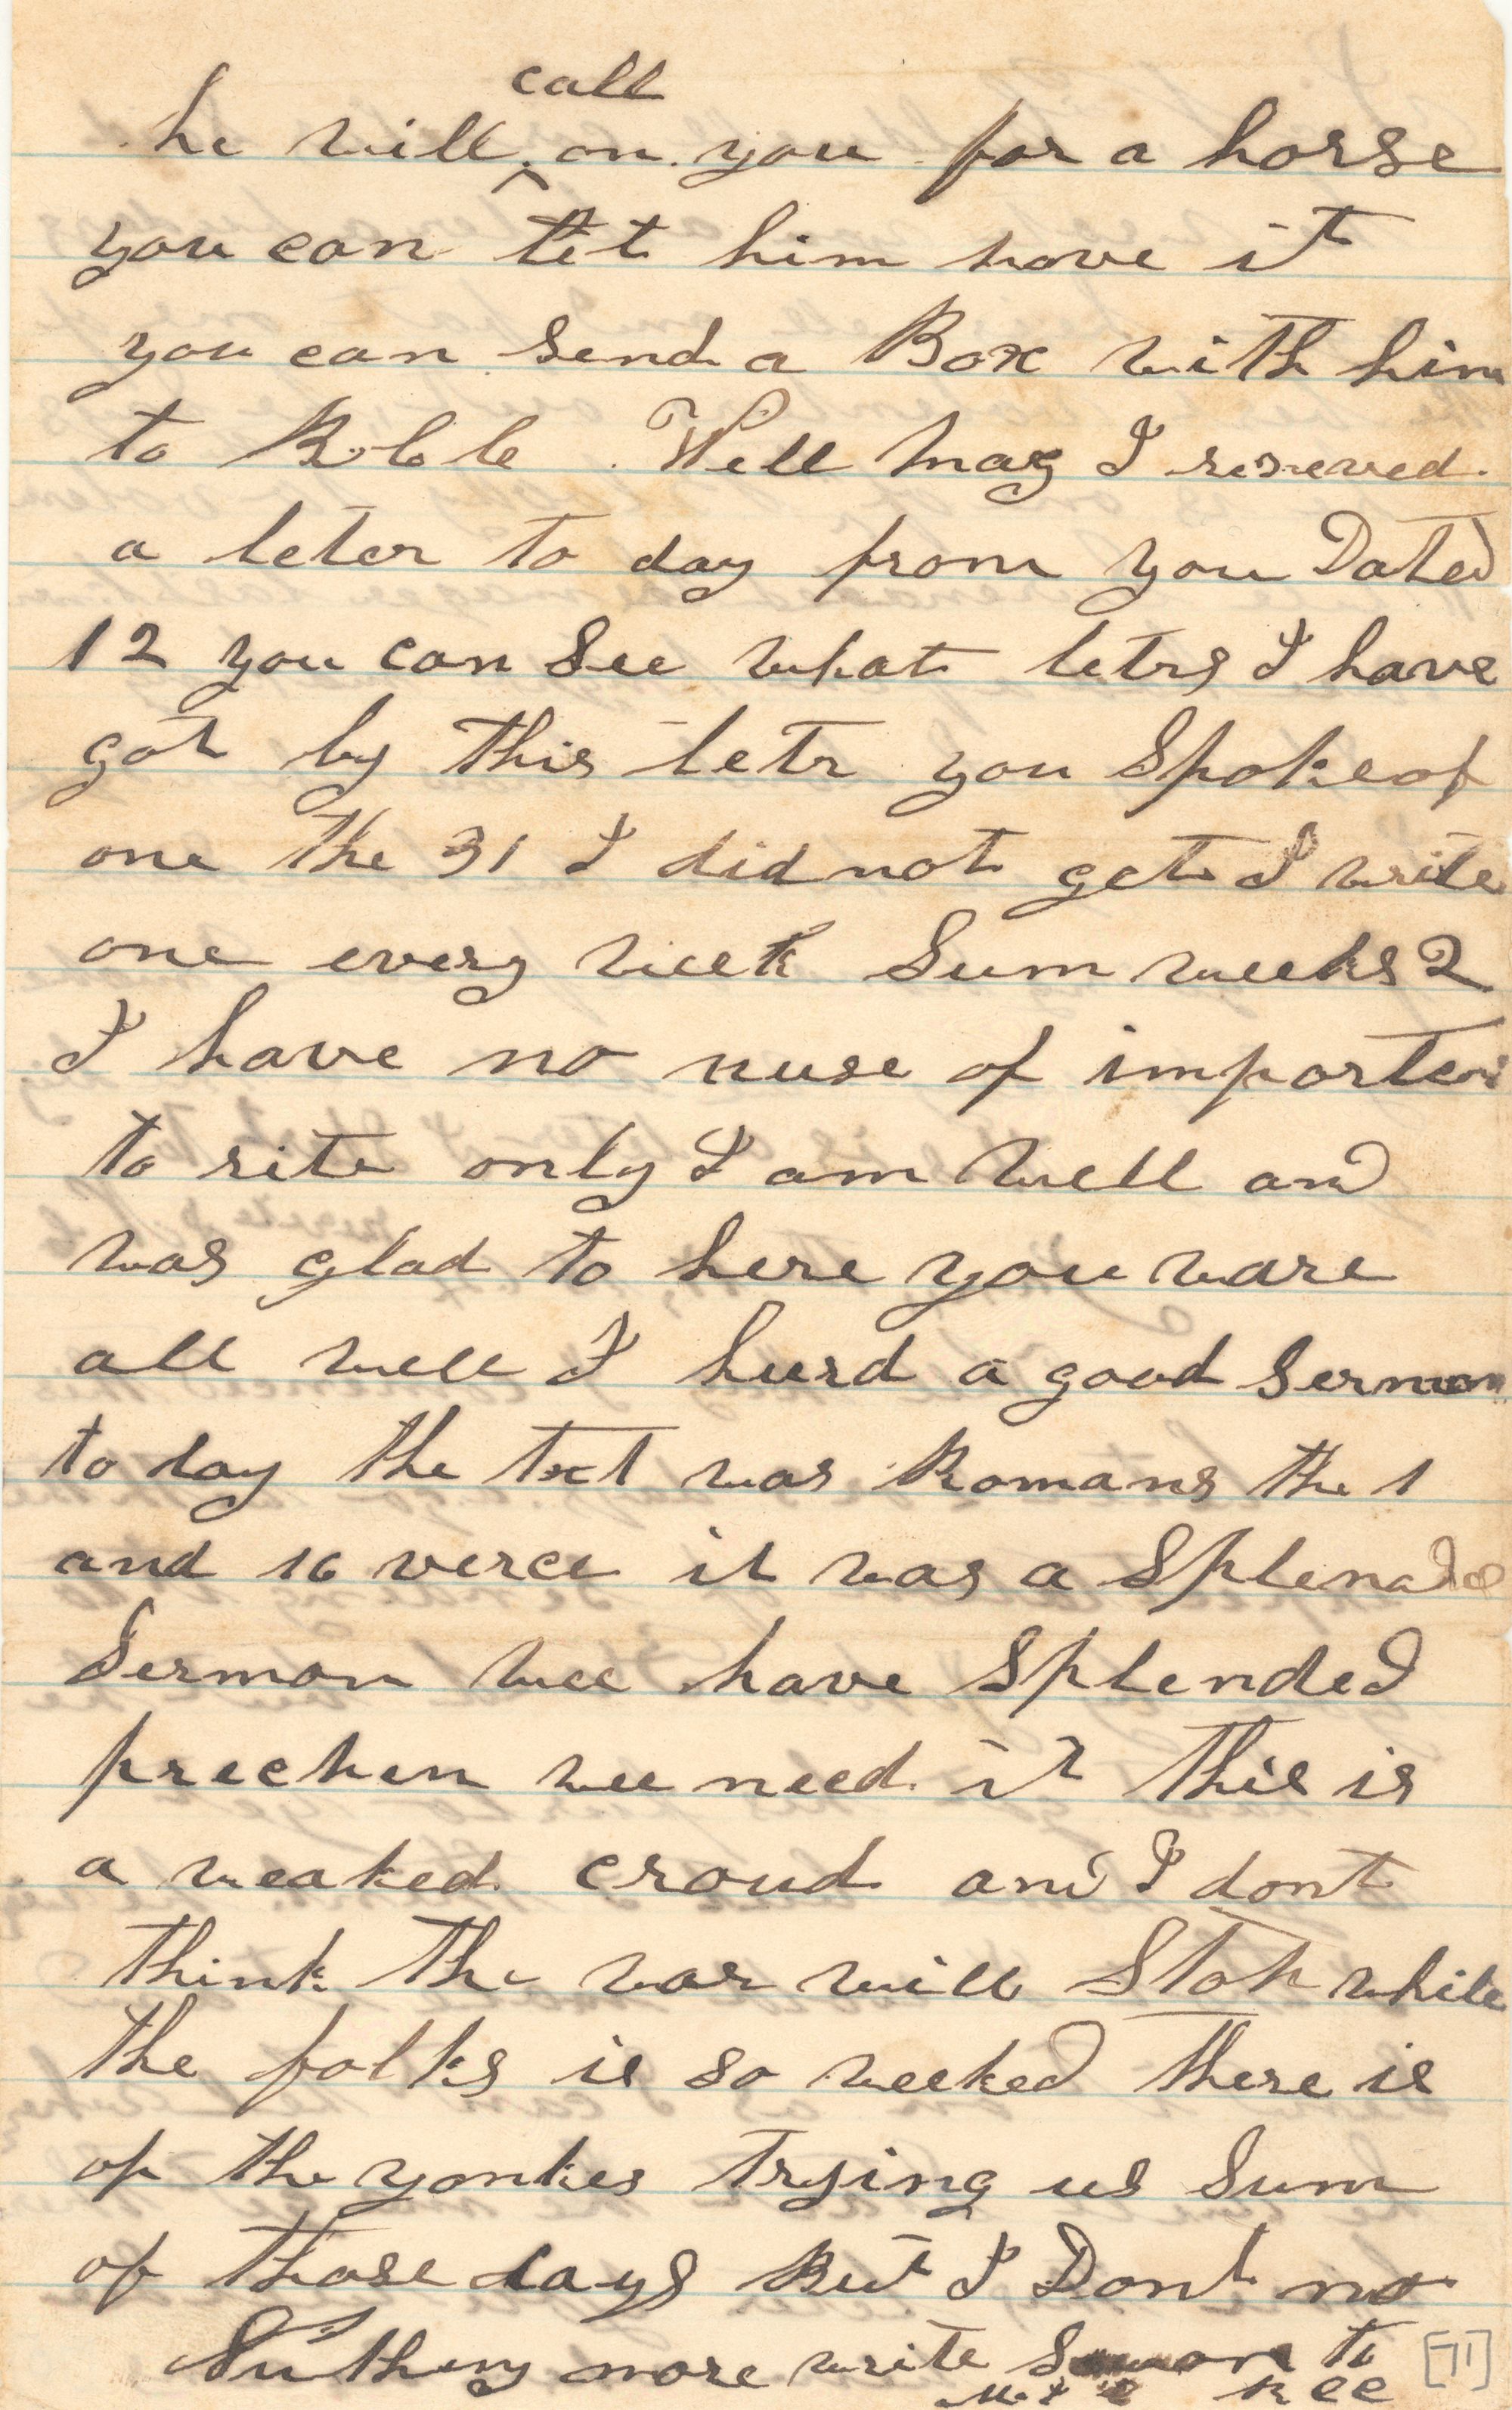 call
he will ^ on you for a horse
you can let him have it
you can send a Box with him
to Well may I reseved
a leter to day from you Dated
12 you can See what letrs I have
got by this letr you Spoke of
one the 31 I did not get I write
one every week Sum weeks 2
I have no nuse of
to rite only I am well and
was glad to here you ware
all well I hurd a good Sermon
to day the text was Romans the 1
and 16 verce it was a
Sermon wee have Splended
prechen wee need it this is
a weaked croud and I dont
think the war will Stop while
the folks is so weeked there is
of the yankes trying us Sum
of those days But I Dont no
Nuthing more write to
[71]